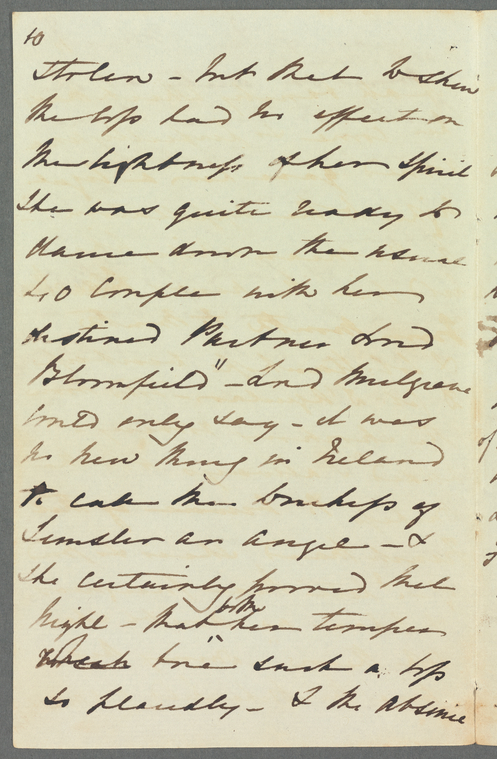 10
Stolen - but that to shew
the loss had no effect on
the lightness of her Spirit
She was quite ready to
dance down the usual
40 Couple with her
destined Partner Lord
Bloomfield" - Lord Mulgrave
could only say - it was
no new thing in Ireland
to call the Duchess of
Leinster an angel - &
She certainly proved that
Night - that both her temper
bore such a loss
so placidly - & the absence